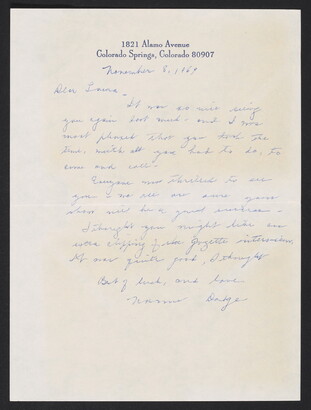 1821 Alamo Avenue
Colorado Springs, Colorado 80907
November 8, 1969
Dear Laura -
It was so nice seeing
you again last week - and I was
most pleased that you took the
time, with all you had to do, to
come and call.
Everyone was thrilled to see
you & we all are sure your
show will be a great success -
I thought you might like an
extra clipping of the Gazette interview.
It was quite good, I thought
Best of luck, and love
Dodge